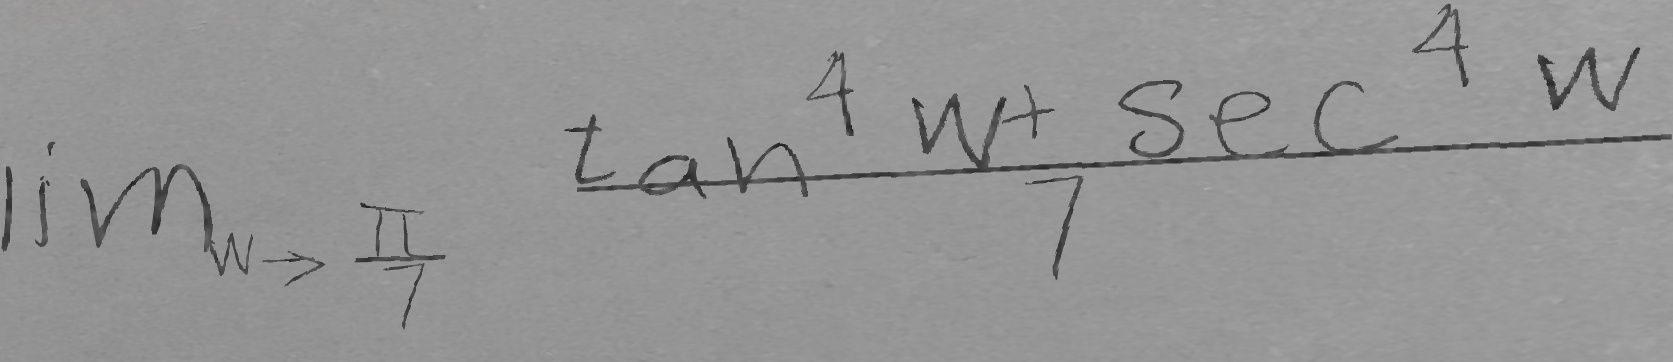 lim_{w \to \frac{\pi}{7}} \frac{\tan^4 w + \sec^4 w}{7}